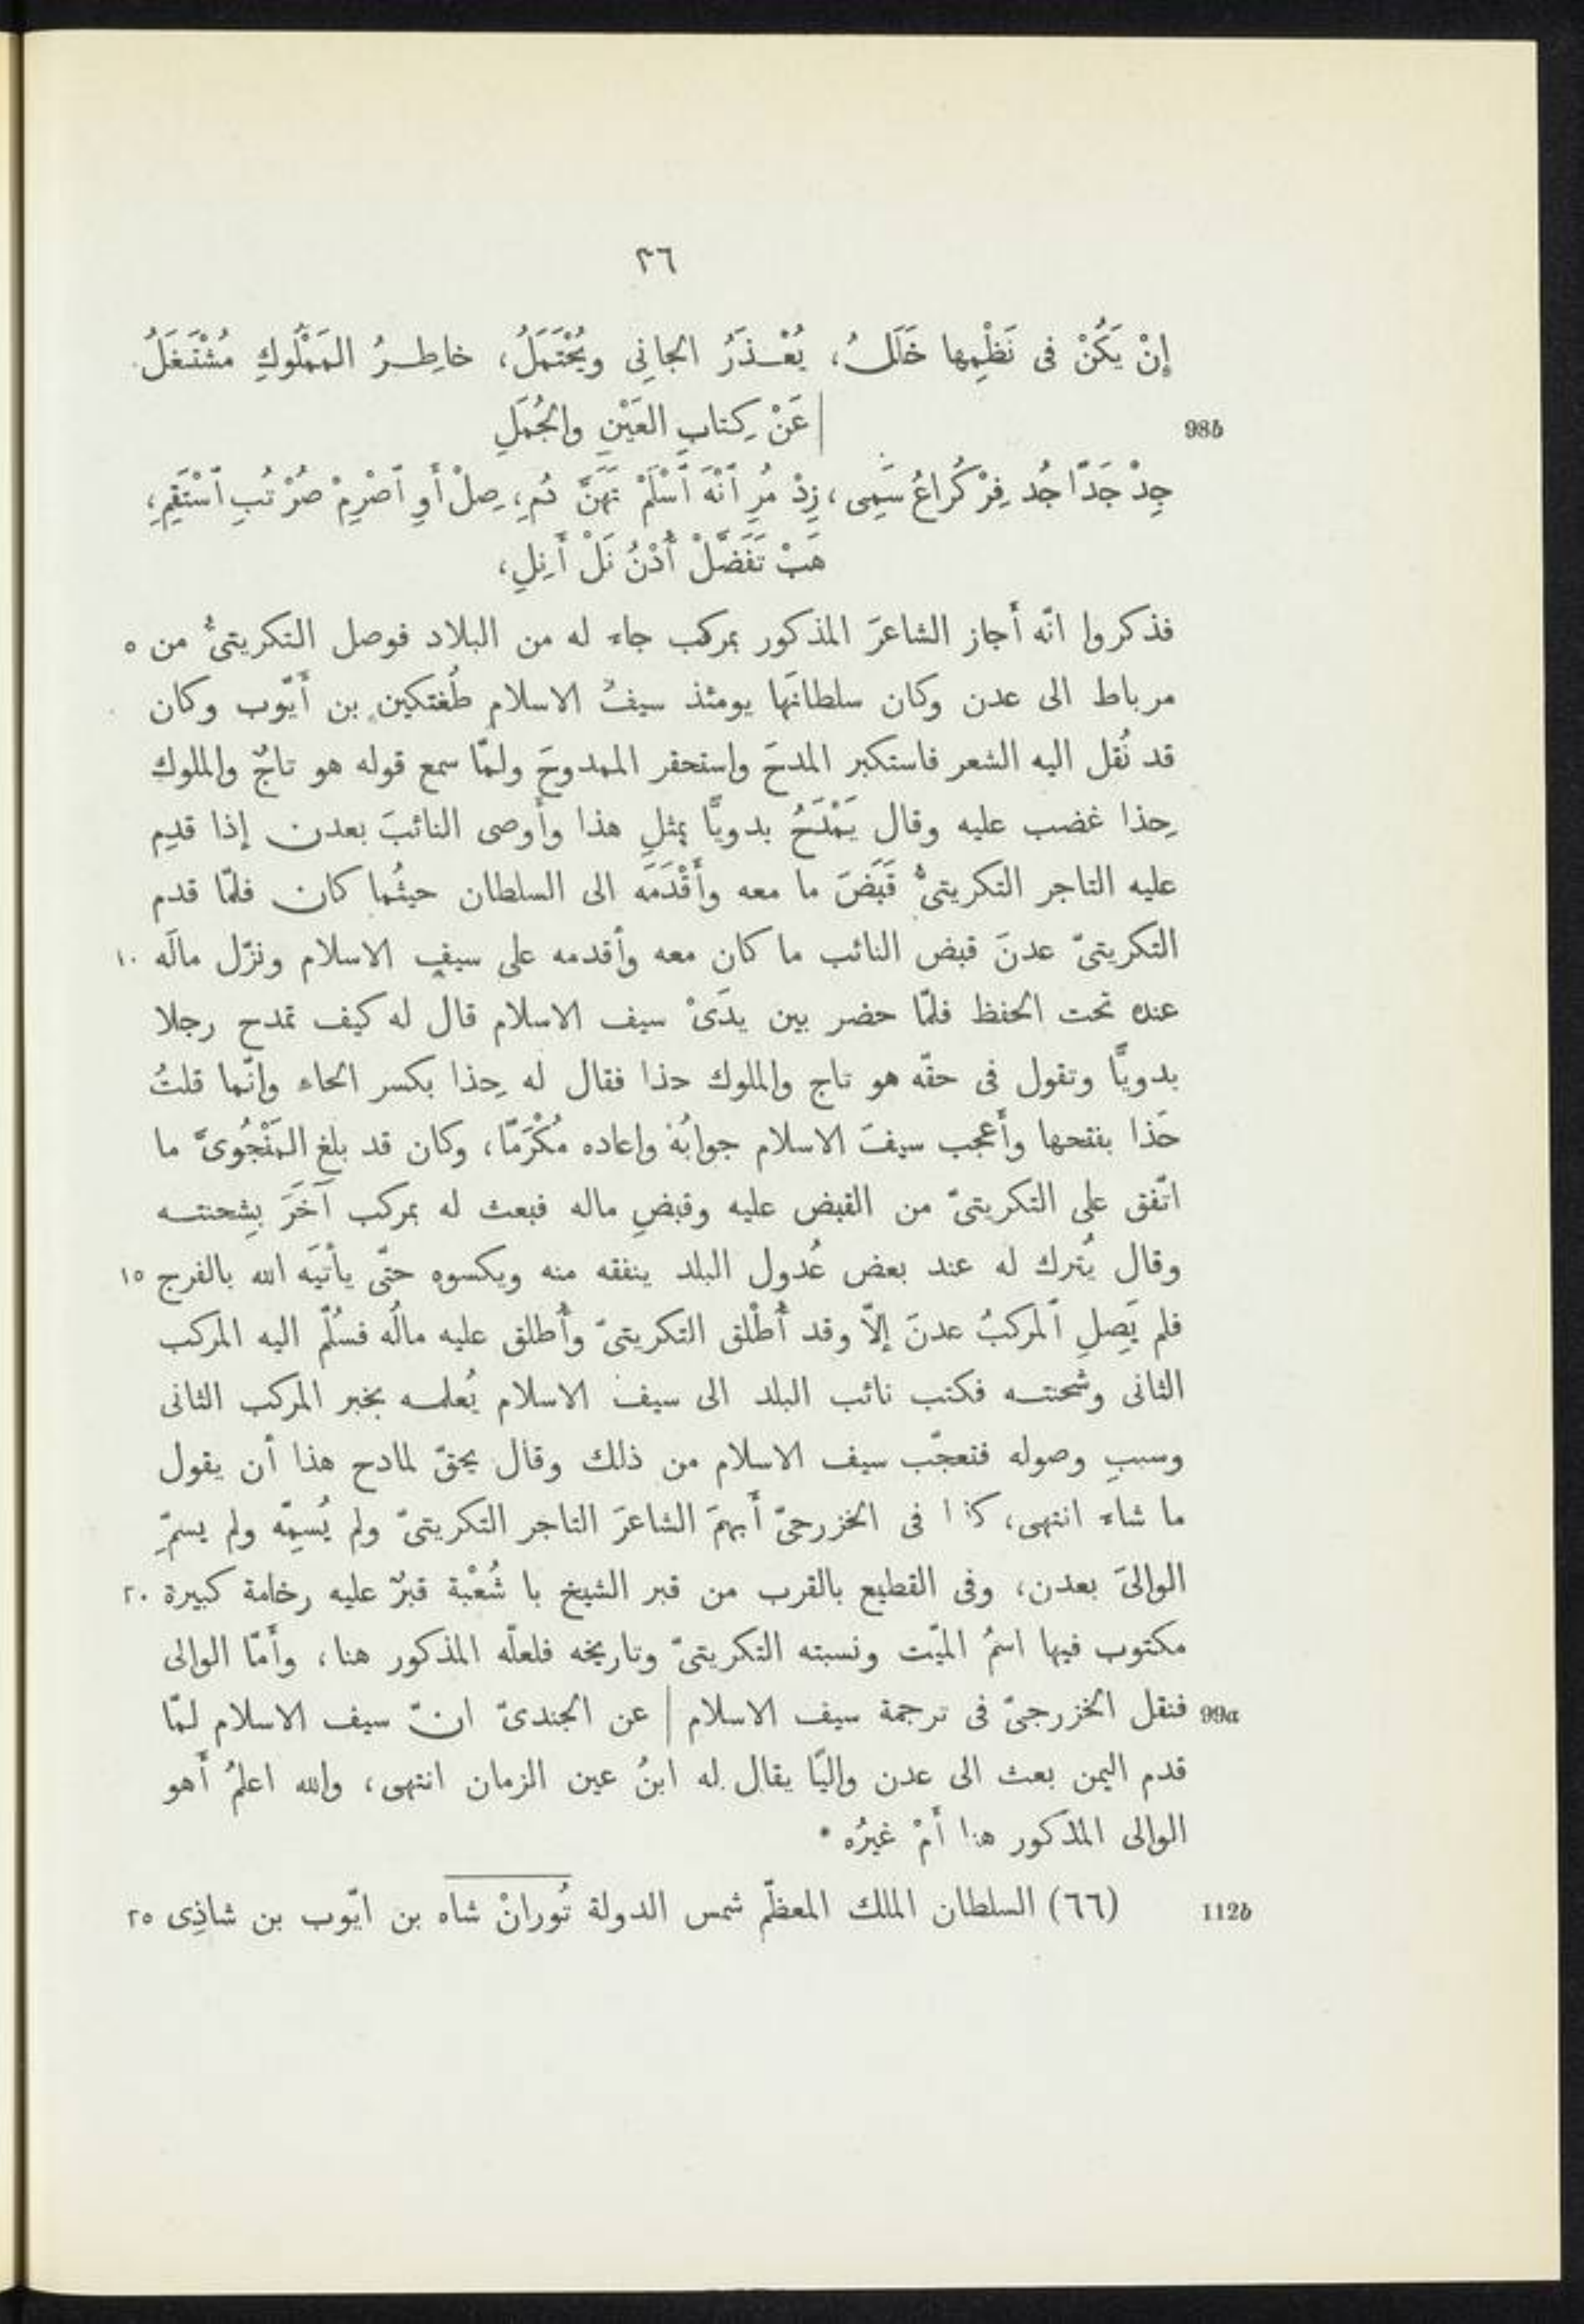 ٣٦
إنْ يَكُنْ فى نَظْمِها خَلَلُ، يُعْـذَرُ الجانِى ويُحْتَمَلُ، خاطِـرُ المَمْلُوكِ مُشْتَغَلُ
98b | عَنْ كِتابِ العَيْنِ والجُمَلِ
جِدْ جَدًّا جُد فِرْ كُراعُ سَمِى، زِدْ مُرِ ٱنْهَ ٱسْلَمْ تَهَنَّ دُمِ، صِلْ أوِ ٱصْرِمْ صُرْ تُبِ ٱسْتَقِمِ،
هَبْ تَفَضَّلْ أُدْنُ نَلْ أَنِلِ،
فذكروا انّه أجاز الشاعرَ المذكور بمركب جاء له من البلاد فوصل التكريتىُّ من ٥
مرباط الى عدن وكان سلطانَها يومئذ سيفُ الاسلام طُغتكين بن أيّوب وكان
قد نُقل اليه الشعر فاستكبر المدحَ واستحقر الممدوحَ ولمّا سمع قوله هو تاجٌ والملوك
حِذا غضب عليه وقال يَمْدَحُ بدويًّا بمثلِ هذا وأوصى النائبَ بعدن إذا قدِم
عليه التاجر التكريتىُّ قَبَضَ ما معه وأَقْدَمَه الى السلطان حيثُما كان فلمّا قدم
التكريتىّ عدنَ قبض النائب ما كان معه وأقدمه على سيفِ الاسلام ونزّل مالَه ١٠
عنده تحت الحفظ فلمّا حضر بين يدَىْ سيف الاسلام قال له كيف تمدح رجلا
بدويًّا وتقول فى حقّه هو تاج والملوك حذا فقال له حِذا بكسر الحاء وانّما قلتُ
حَذا بفتحها وأعجب سيفَ الاسلام جوابُهُ واعاده مُكْرَمًا، وكان قد بلغ المَنْجُوىَّ ما
اتّفق على التكريتىّ من القبض عليه وقبضِ ماله فبعث له بمركب آخَرَ بِشحنتـه
وقال يُترك له عند بعض عُدول البلد ينفقه منه ويكسوه حتّى يأتيَه الله بالفرج ١٥
فلم يَصِلِ ٱلمركبُ عدنَ إلّا وقد أُطْلق التكريتىّ وأُطلق عليه مالُه فسُلّم اليه المركب
الثانى وشحنتـه فكتب نائب البلد الى سيف الاسلام يُعلمـه بخبر المركب الثانى
وسببِ وصوله فتعجّب سيف الاسلام من ذلك وقال يحقّ لمادح هذا أن يقول
ما شاء انتهى، كذا فى الخزرجىّ أبهمَ الشاعرَ التاجر التكريتىّ ولم يُسمِّه ولم يسمِّ
الوالىَ بعدن، وفى القطيع بالقرب من قبر الشيخ با شُعْبة قبرٌ عليه رخامة كبيرة ٢٠
مكتوب فيها اسمُ الميّت ونسبته التكريتىّ وتاريخه فلعلّه المذكور هنا، وأمّا الوالى
99a فنقل الخزرجىّ فى ترجمة سيف الاسلام | عن الجندىّ انّ سيف الاسلام لمّا
قدم اليمن بعث الى عدن واليًا يقال له ابنُ عين الزمان انتهى، والله اعلمُ أهو
الوالى المذكور هنا أمْ غيرُه *
112b (٦٦) السلطان الملك المعظّم شمس الدولة تُورانْ شاه بن ايّوب بن شاذِى ٢٥